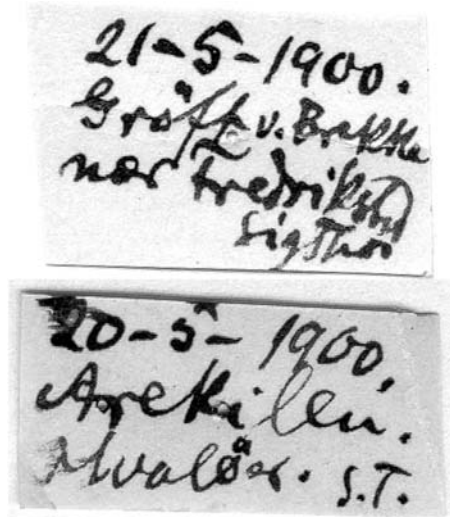 21-5-1900.
Gröft v. Brekke
nær Fredrikstad
Sig Thor
20-5-1900.
Arekilen.
Hvaløer. S.T.